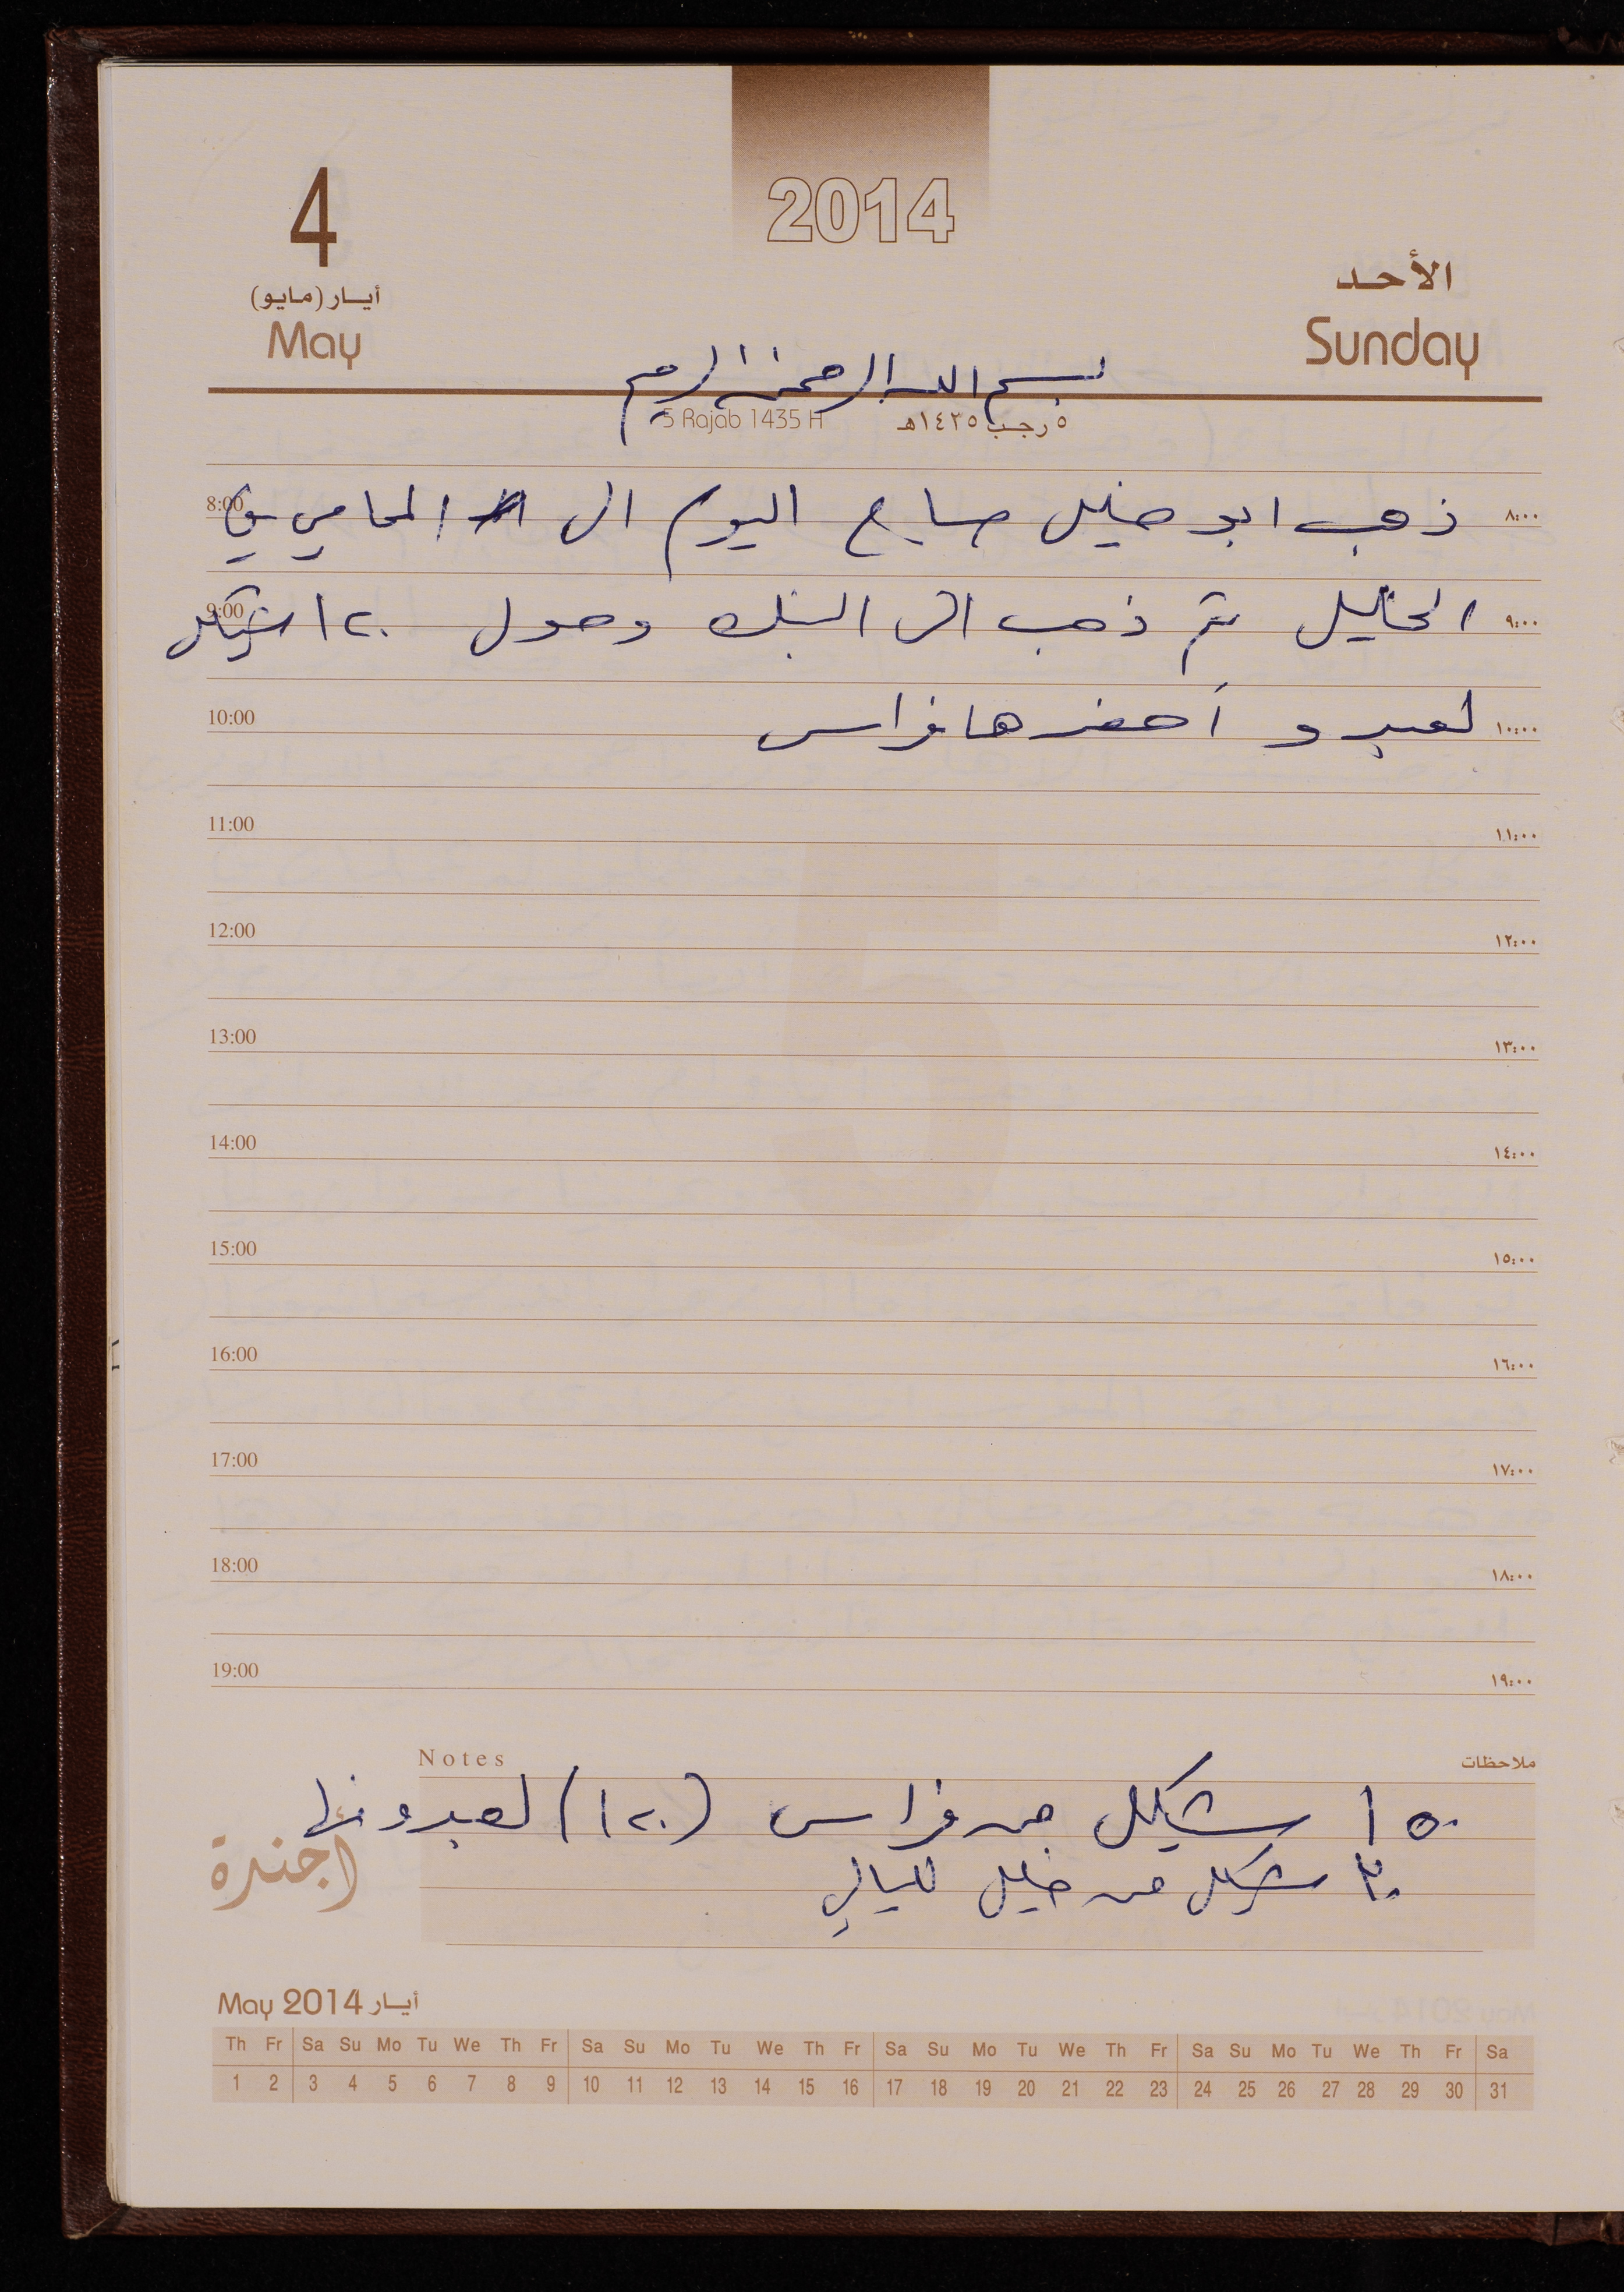 2014
4
أيار (مايو)
May
الأحد
Sunday
بسم الله الرحمن الرحيم
5 Rajab 1435 H
٥ رجب ١٤٣٥هـ
8:00 ذهب ابو خليل صباح اليوم الى المحامي في ٨:٠٠
9:00 الخليل ثم ذهب الى البنك وحول ١٢٠ شيكل ٩:٠٠
10:00 لعبدو أحضرها فراس ١٠:٠٠
11:00 ١١:٠٠
12:00 ١٢:٠٠
13:00 ١٣:٠٠
14:00 ١٤:٠٠
15:00 ١٥:٠٠
16:00 ١٦:٠٠
17:00 ١٧:٠٠
18:00 ١٨:٠٠
19:00 ١٩:٠٠
Notes ملاحظات
١٥٠ شيكل من فراس (١٢٠) لعبدو
شيكل من خليل لليالي
اجندة
May 2014 أيار
Th Fr Sa Su Mo Tu We Th Fr Sa Su Mo Tu We Th Fr Sa Su Mo Tu We Th Fr Sa Su Mo Tu We Th Fr Sa
1 2 3 4 5 6 7 8 9 10 11 12 13 14 15 16 17 18 19 20 21 22 23 24 25 26 27 28 29 30 31